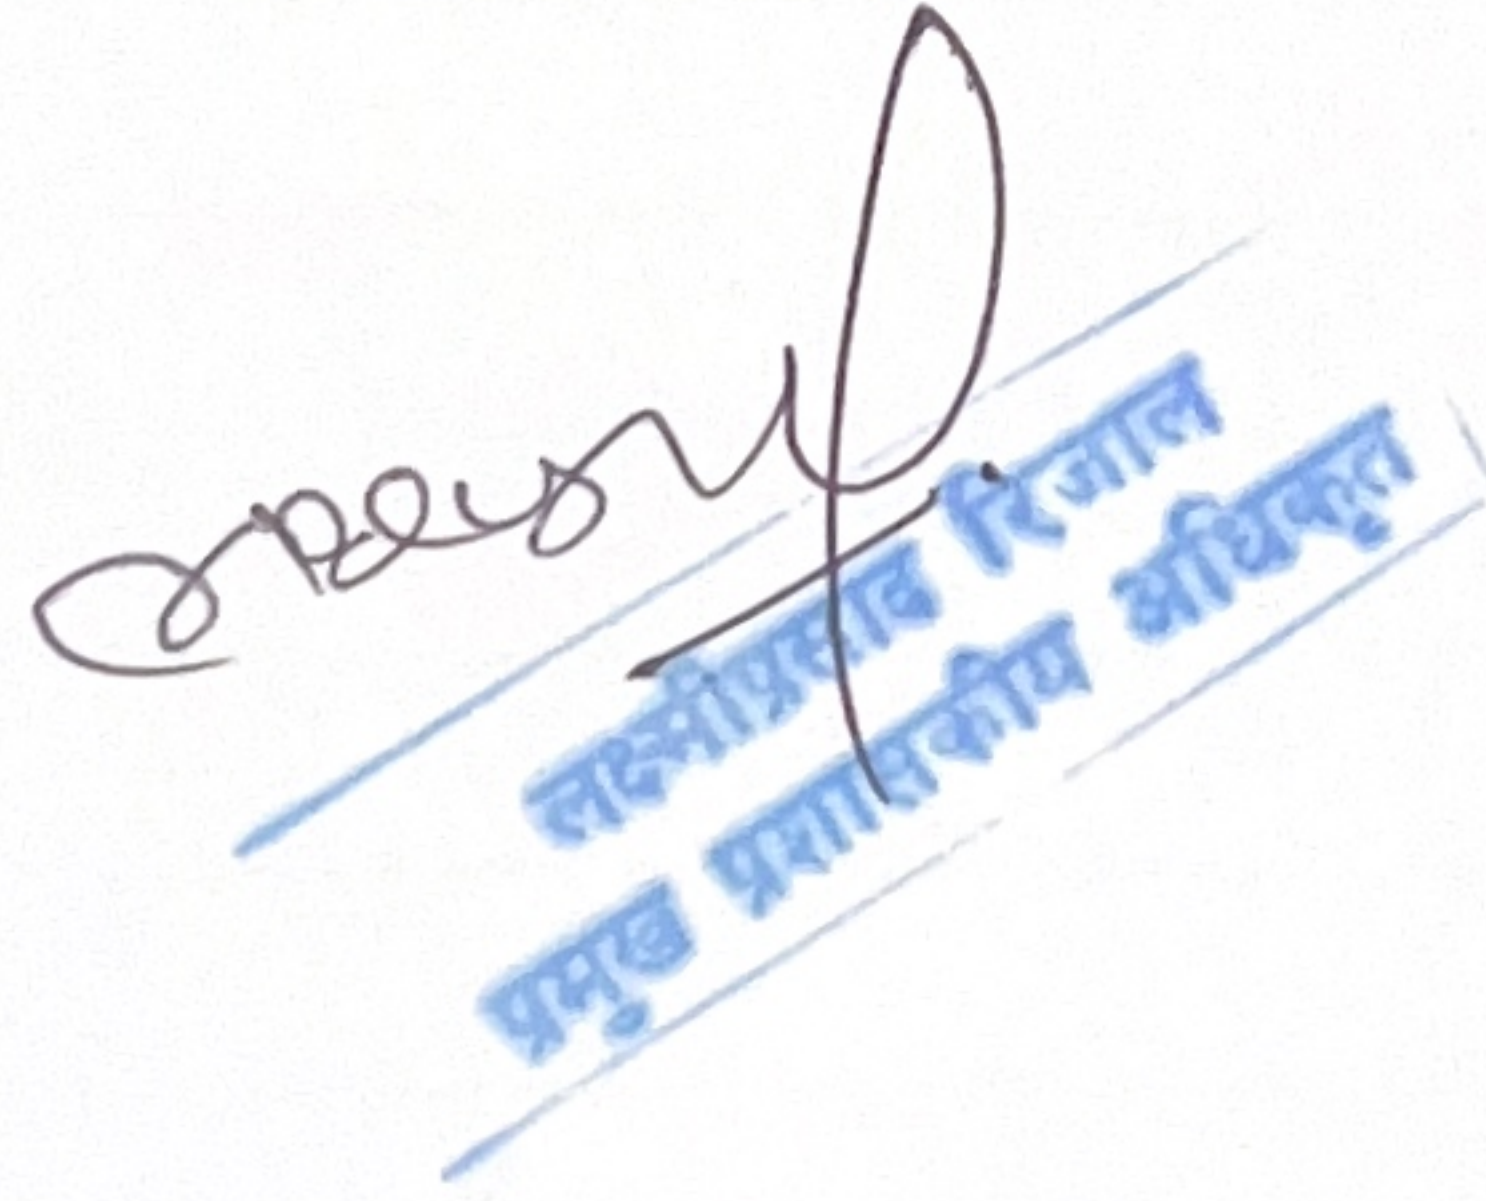 लक्ष्मीप्रसाद रिजाल
प्रमुख प्रशासकीय अधिकृत